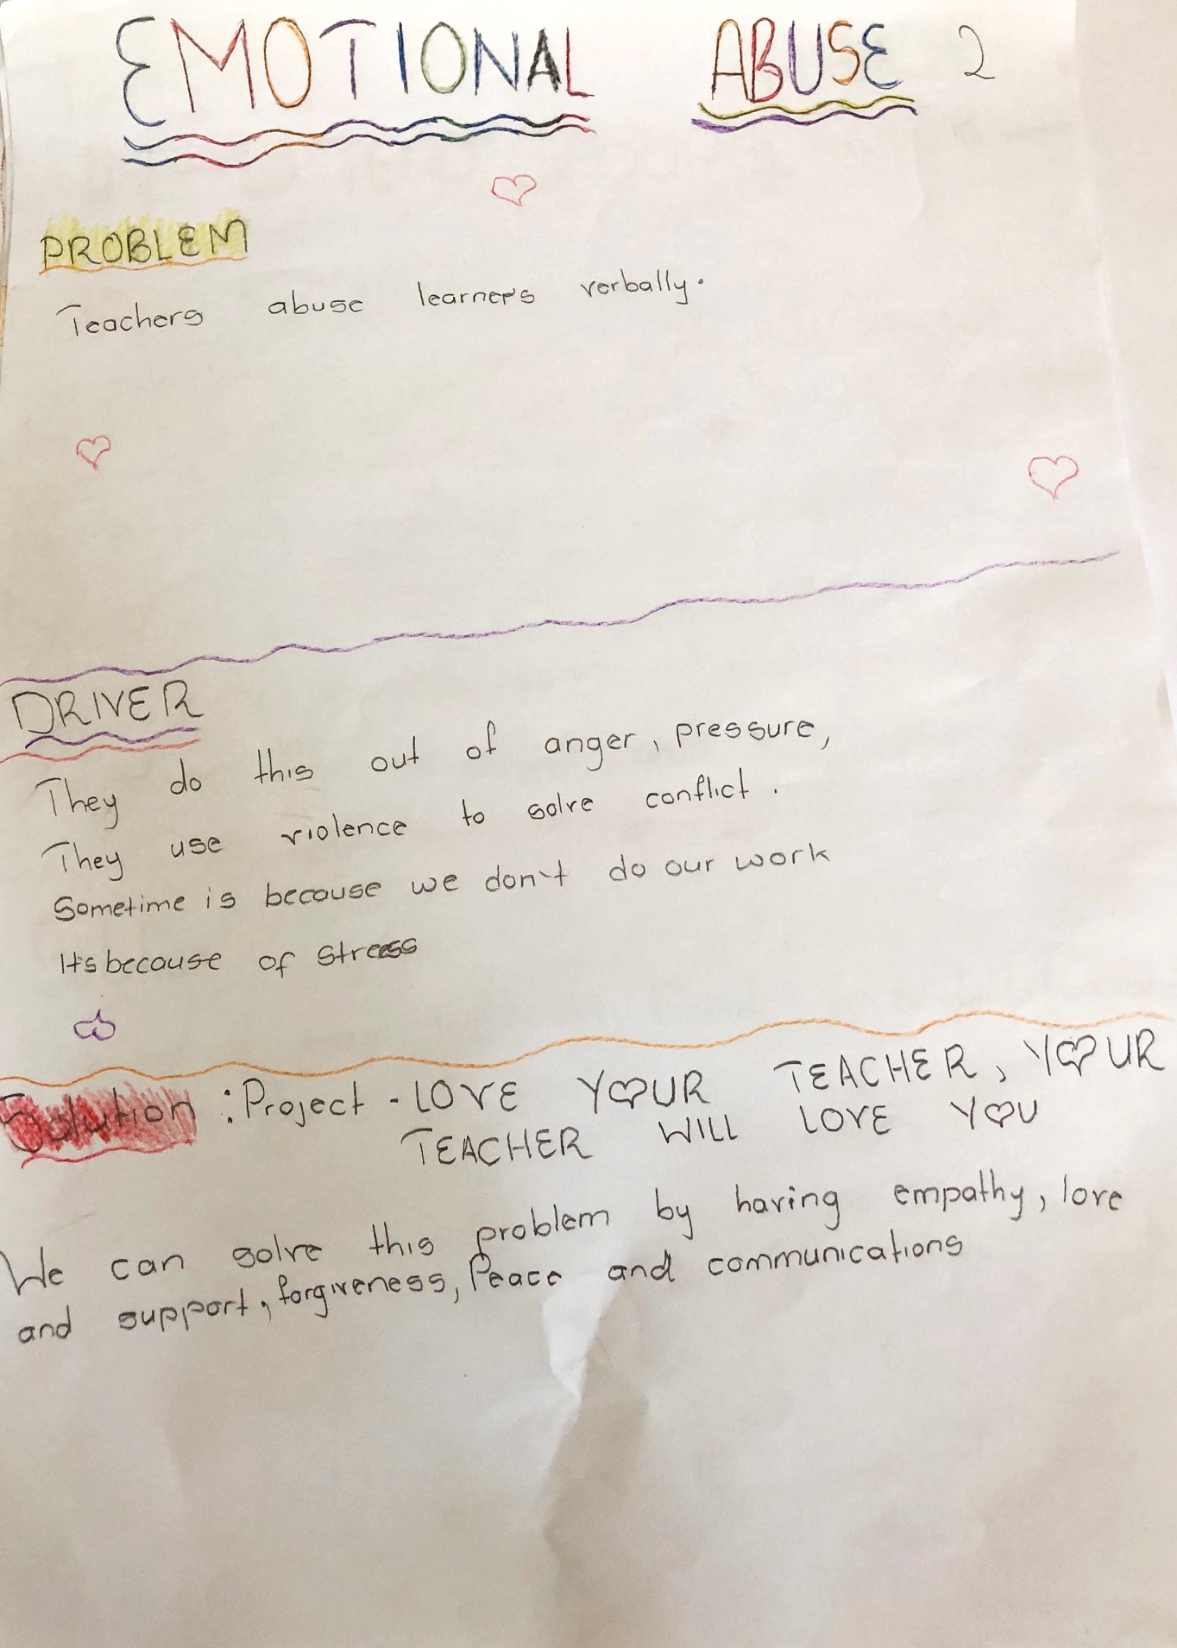 EMOTIONAL ABUSE 2
PROBLEM
Teachers abuse learners verbally.
DRIVER
They do this out of anger, pressure,
They use violence to solve conflict.
Sometime is because we don't do our work
Its because of stress
Solution : Project - LOVE YOUR TEACHER, YOUR
TEACHER WILL LOVE YOU
We can solve this problem by having empathy, love
and support, forgiveness, Peace and communications